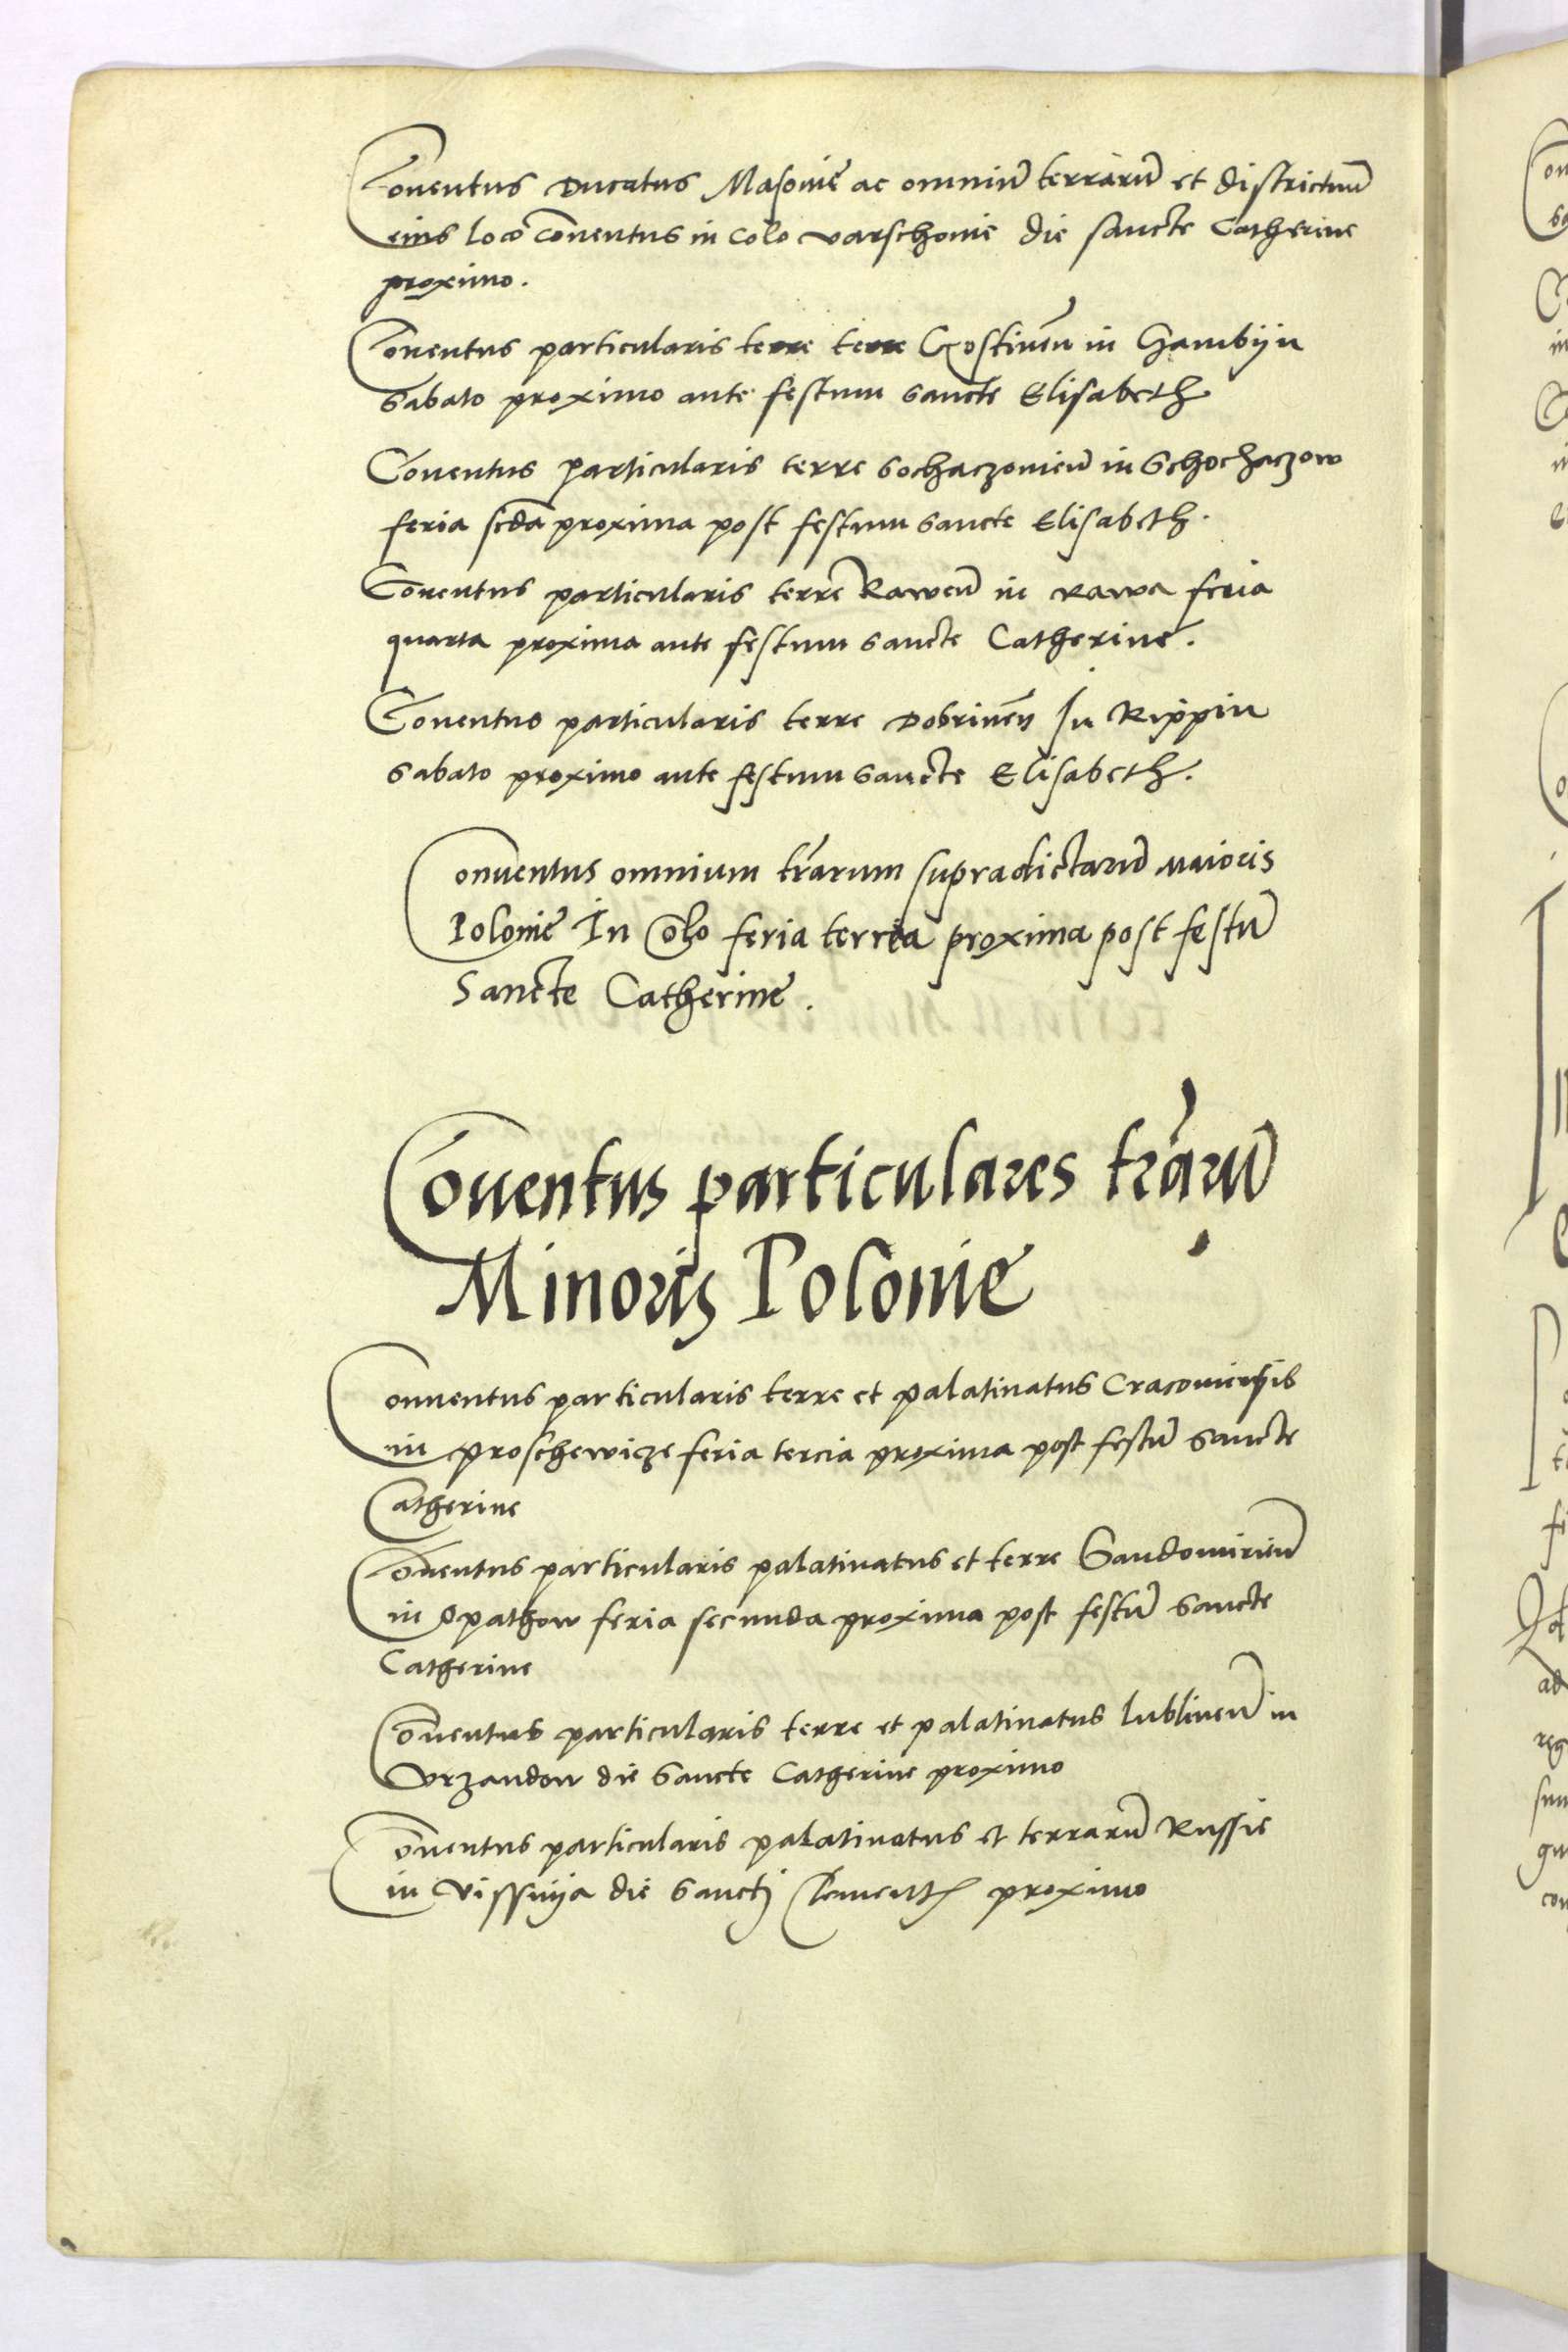 Cōventus Ducatus Masovie ac omniū terrarū et districtuū
eius loco cōventus in Colo varschovie die sancte Catherine
proximo.
Conventus particularis terre terre Gostineñ in Gambijn
Sabato proximo ante festum sancte Elisabeth
Cōventus particularis terre Sochaczovieñ in Schochaczow
feria scđa proxima post festum sancte Elisabeth.
Cōventus particularis terre Raweñ in Rawa feria
quarta proxima ante festum sancte Catherine.
Cōventus particularis terre Dobrineñ In Rippin
Sabato proximo ante festum sancte Elisabeth.
Conventus omnium trārum supradictarū Maioris
Polonie In Colo feria tercia proxima post festū
Sancte Catherine.
Cōventus particulares trārū
Minoris Polonie
Conventus particularis terre et palatinatus Cracoviensis
in Proschewicze feria tercia proxima post festū Sancte
Catherine
Cōventus particularis palatinatus et terre Sandomirieñ
in Opathow feria secunda proxima post festū Sancte
Catherine
Cōventus particularis terre et palatinatus lublineñ in
Vrzandow die Sancte Catherine proximo
Cōventus particularis palatinatus et terrarū Russie
in Vissnija die Sancti Clementis proximo